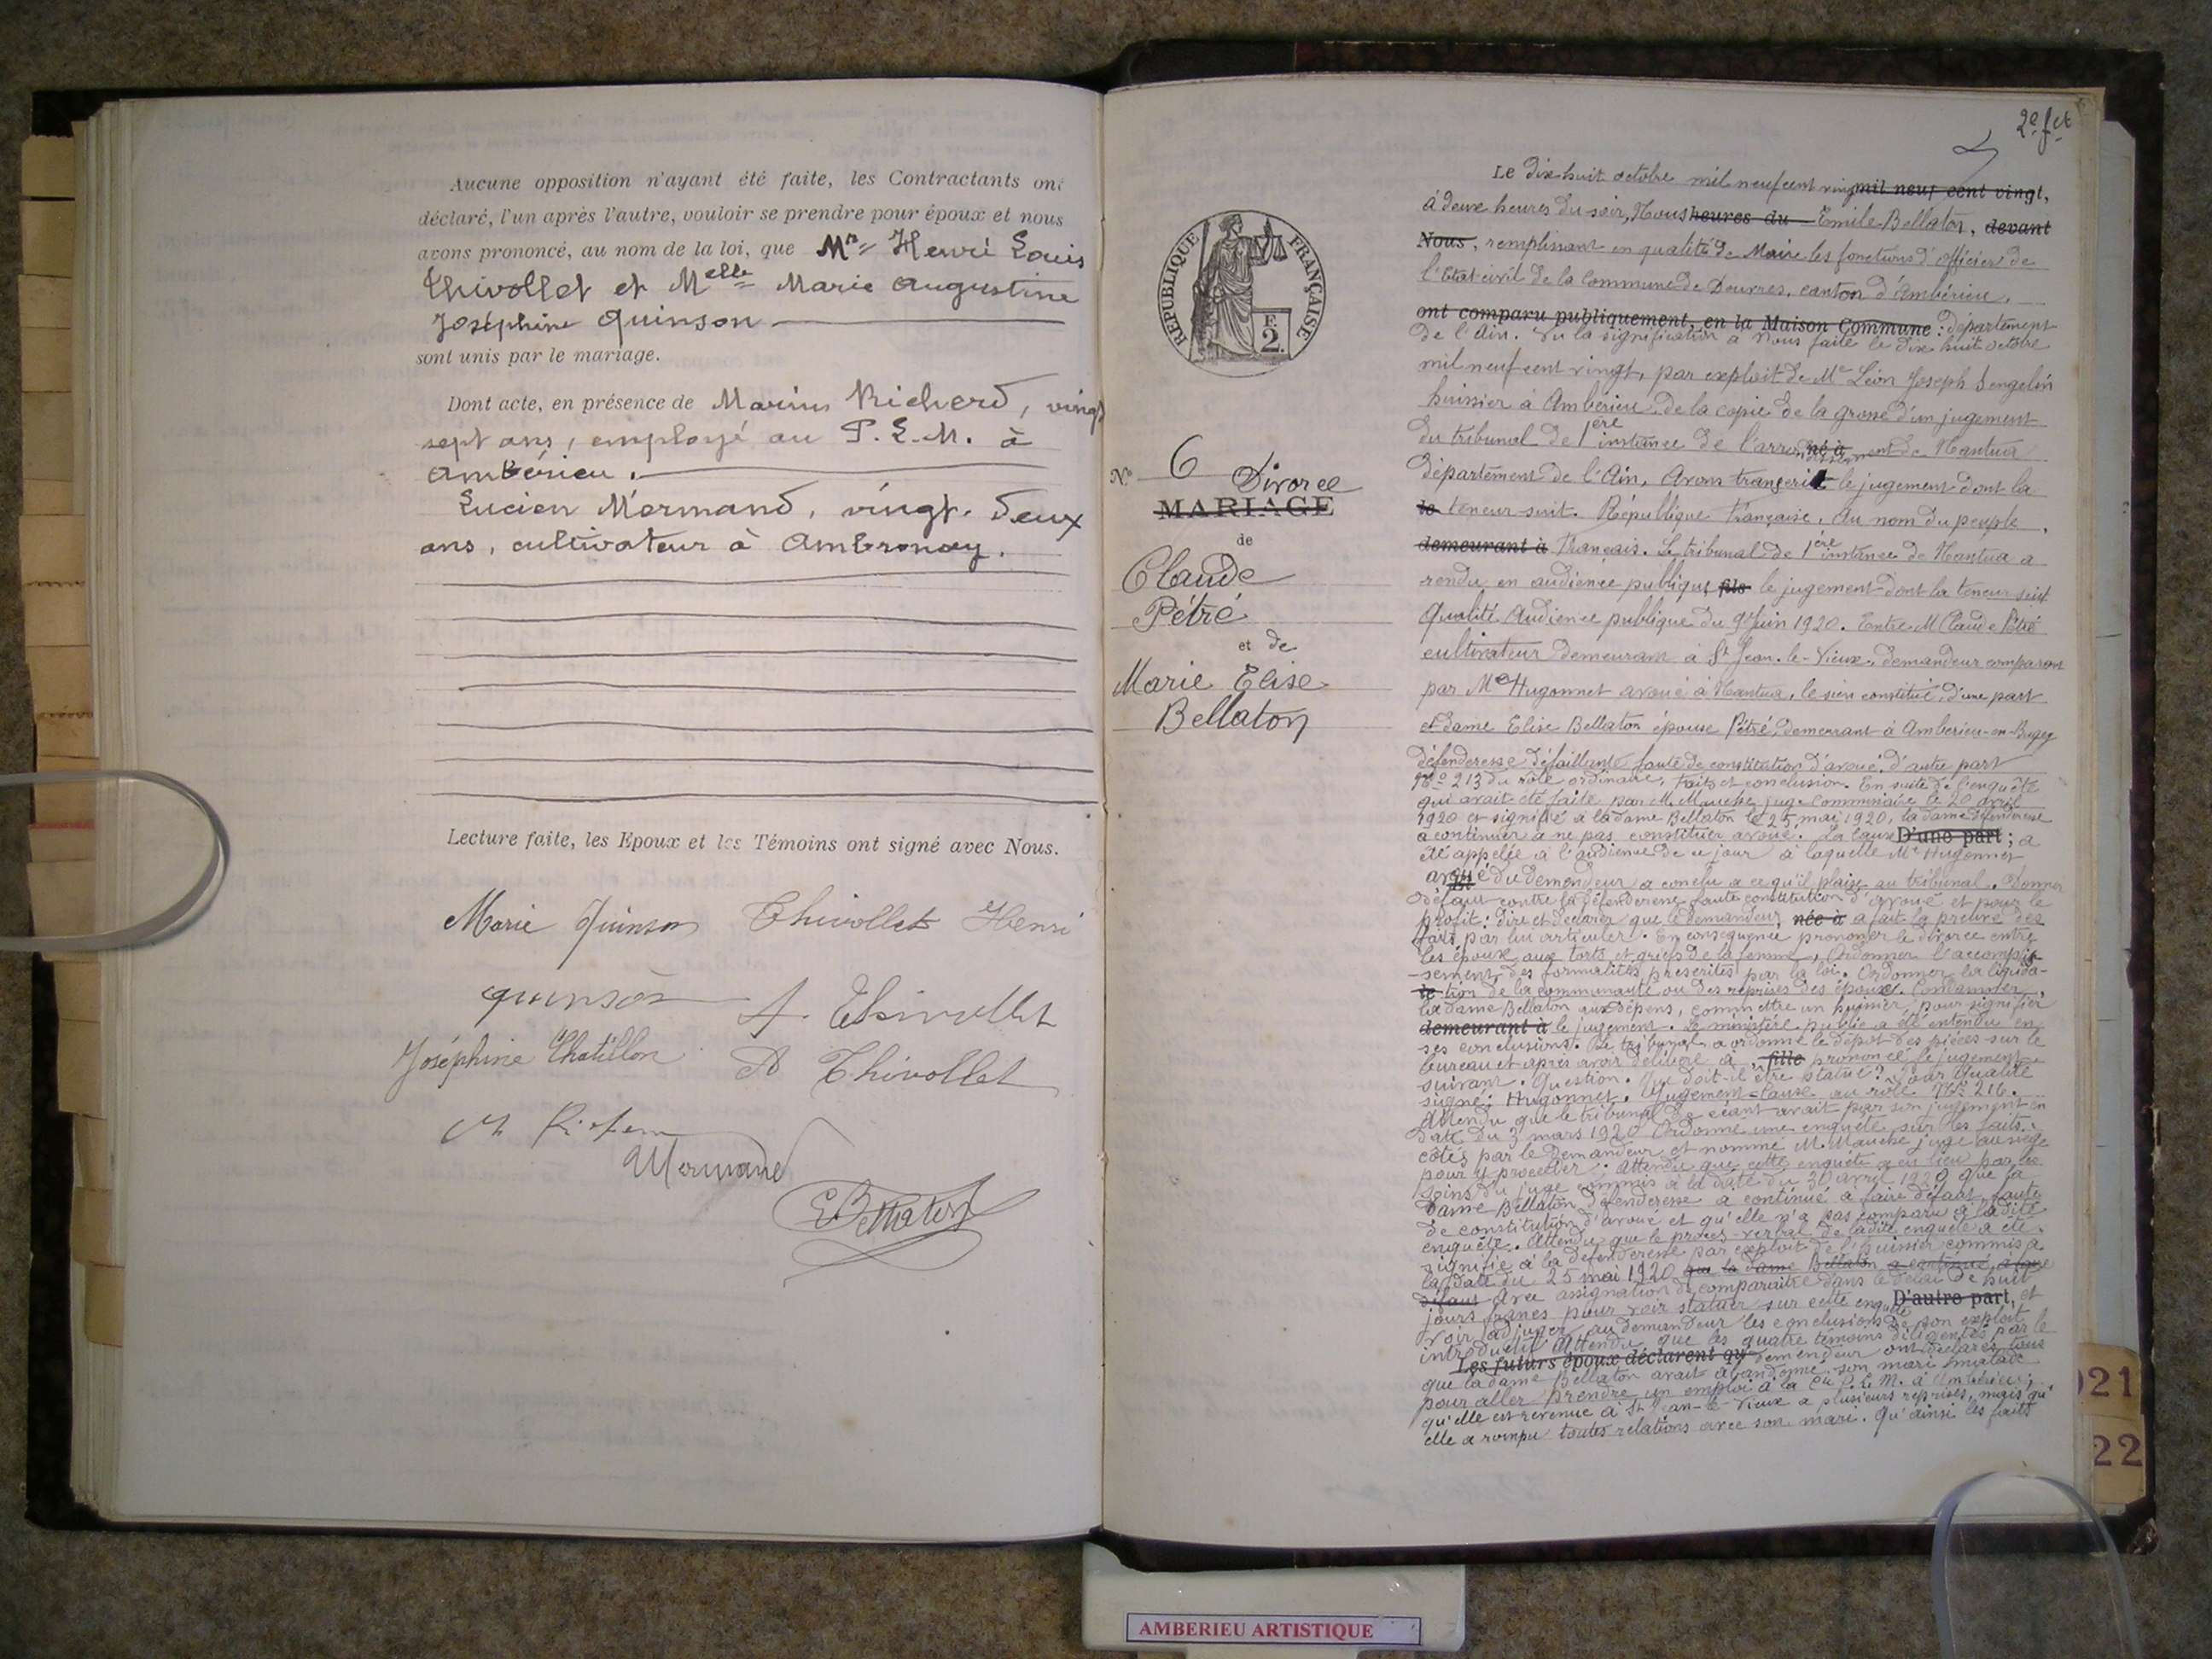 Aucune opposition n'ayant été faite, les Contractants ont
déclaré, l'un après l'autre, vouloir se prendre pour époux et nous
avons prononcé, au nom de la loi, que Mr Henri Louis
Thivollet et Melle Marie Augustine
Joséphine Quinson
sont unis par le mariage.
Dont acte, en présence de Marius Richerd, vingt
sept ans, employé au P.L.M. à
Ambérieu.
Lucien Mermand, vingt-deux
ans, cultivateur à Ambronay.
Lecture faite, les Epoux et les Témoins ont signé avec Nous.
Marie Quinson Thivollet Henri
quinson A. Thivollet
Joséphine Chatillon A Thivollet
Mermand
EBellaton
REPUBLIQUE FRANÇAISE
F.
2.
No 6 Divorce
MARIAGE
de
Claude
Pétré
et de
Marie Elise
Bellaton
2e fet
Le dix-huit octobre mil neuf cent vingt mil neuf cent vingt,
à deux heures du soir, Nous heures du Emile Bellaton, devant
Nous, remplissant en qualité de Maire les fonctions d'officier de
l'Etat civil de la Commune de Douvres, canton d'Ambérieu,
ont comparu publiquement, en la Maison Commune : département
de l'Ain. Vu la signification à Nous faite le dix huit octobre
mil neuf cent vingt, par exploit de Me Léon Joseph
huissier à Ambérieu, de la copie de la grosse d'un jugement
du tribunal de 1ère instance de l'arrondissement né à de Nantua
département de l'Ain, Avons transcrit le jugement dont la
le teneur suit. République Française, Au nom du peuple
demeurant à Français. Le tribunal de 1ère instance de Nantua a
rendu en audience publique fils le jugement dont la teneur suit
Qualité Audience publique du 9 Juin 1920. Entre M Claude Pétré
cultivateur demeurant à St Jean-le-Vieux, demandeur comparant
par Me Hugonnet avoué à Nantua, le sien constitué, d'une part
et dame Elise Bellaton épouse Pétré, demeurant à Ambérieu-en-Bugey
défenderesse défaillante faute de constitution d'avoué, d'autre part
No 213 du rôle ordinaire. Faits et conclusion. En suite de l'enquête
qui avait été faite par M. Mauche juge Commissaire le 20 avril
1920 et signifié à la dame Bellaton le 25 mai 1920, la dame défenderesse
a continuer à ne pas constituer avoué. La Cause D'une part ; a
été appelée à l'audience de ce jour à laquelle Me Hugonnet
avoué Et du demandeur a conclu a ce qu'il plaise au tribunal. Donner
défaut contre la défenderesse faute constitution d'avoué et pour le
profit : dire et déclarer que le demandeur, née à a fait la preuve des
faits par lui articuler. En conséquence prononcer le divorce entre
les époux aux torts et griefs de la femme, Ordonner l'accomplis-
-sement des formalités prescrites par la loi. Ordonner la liquida-
le tion de la communauté ou des reprises des époux. Condamner,
la dame Bellaton aux dépens, commettre un huissier pour signifier
demeurant à le jugement. Le ministère public a été entendu en
ses conclusions. Le tribunal a ordonné le dépôt des pièces sur le
bureau et après avoir délibéré a, fille prononcé le jugement
suivant. Question. Que doit-il être statué? Pour Qualité
signé: Hugonnet. Jugement-Cause au rôle No 216.
Attendu que le tribunal de céant avait par son jugement en
date du 3 mars 1920 Ordonné une enquête sur les faits
cotés par le demandeur et nommé M. Mauche juge au siège
pour y procéder. Attendu que cette enquête a eu lieu par les
soins du juge commis à la date du 30 avril 1920 que la
dame Bellaton défenderesse a continué a faire défaut faute
de constitution d'avoué et qu'elle n'a pas comparu à ladite
enquête. Attendu que le procès-verbal de ladite enquête a été
signifié à la défenderesse par exploit de l'huissier commis à
la date du 25 mai 1920 que la dame Bellaton a continué a faire
défaut Avec assignation de comparaitre dans le délai de huit
jours francs pour voir statuer sur cette enquête D'autre part, et
voir adjuger au demandeur les conclusions de son exploit
introductif Attendu que les quatre témoins diligentés par le
Les futurs époux déclarent qu demandeur ont déclarés tous
que la dame Bellaton avait abandonné son mari malade
pour aller prendre un emploi à la Cie P.L.M. à Ambérieu;
qu'elle est revenue à St Jean-le-Vieux a plusieurs reprises, mais qu'
elle a rompu toutes relations avec son mari. Qu'ainsi les faits
021
22
AMBERIEU ARTISTIQUE